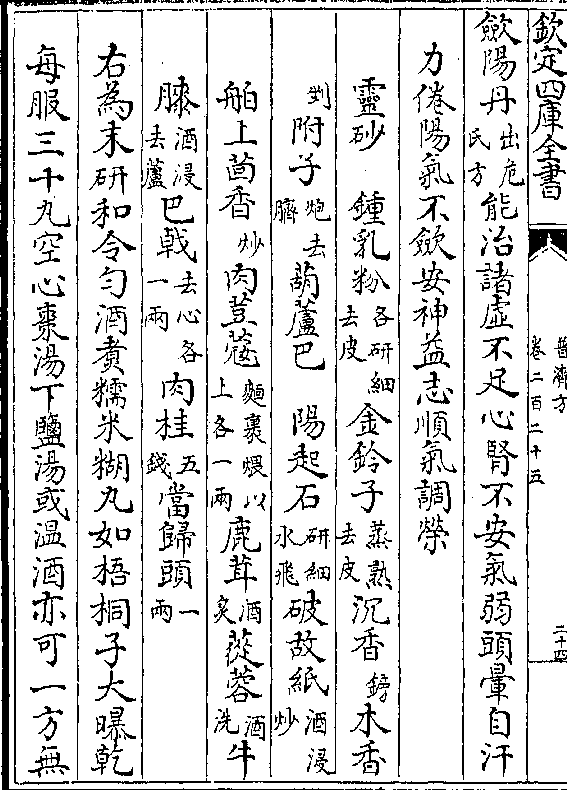 欽定四庫全書 普濟方 卷二百二十五 二十四
歛陽丹出危氏方能治諸虛不足心腎不安氣弱頭暈自汗
力倦陽氣不歛安神益志順氣調榮
靈砂 鍾乳粉各研細去皮金鈴子蒸熟去皮沉香鎊木香
剉附子炮去臍葫蘆巴 陽起石研細水飛破故紙酒浸炒
舶上茴香炒肉荳蔻麵裹煨以上各一兩鹿茸酒炙蓯蓉酒洗牛
膝酒浸去蘆巴戟去心各一兩肉桂五錢當歸頭一兩
右為末研和令勻酒煮糯米糊丸如梧桐子大曝乾
每服三十丸空心棗湯下鹽湯或温酒亦可一方無